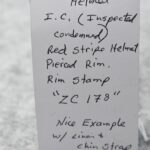 Helmet
I.C. (Inspected
condemned)
Red Stripe Helmet
Pierced Rim.
Rim Stamp
"ZC 178"
Nice Example
w/ Liner &
chin strap